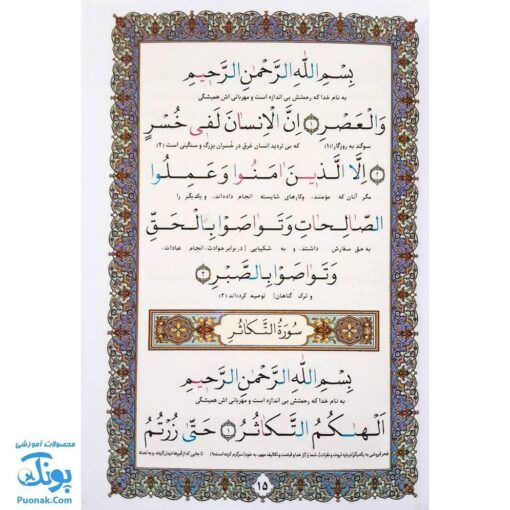 بِسْمِ اللّٰهِ الرَّحْمٰنِ الرَّحیمِ
به نام خدا که رحمتش بی اندازه است و مهربانی اش همیشگی
وَالْعَصْرِ ۱ اِنَّ الْاِنْسانَ لَفی خُسْرٍ
سوگند به روزگار(۱) که بی تردید انسان غرق در خُسران بزرگ و سنگینی است (۲)
۲ اِلَّا الَّذینَ اٰمَنُوا وَعَمِلُوا
مگر آنان که مؤمنند، وکارهای شایسته انجام داده‌اند، و یکدیگر را
الصّالِحاتِ وَتَواصَوْا بِالْحَقِّ
به حق سفارش داشتند، و به شکیبایی [دربرابر حوادث، انجام عبادات،
وَتَواصَوْا بِالصَّبْرِ ۳
و ترک گناهان] توصیه کرده‌اند (۳)
سُورَةُ التَّكاثُرِ
بِسْمِ اللّٰهِ الرَّحْمٰنِ الرَّحیمِ
به نام خدا که رحمتش بی اندازه است و مهربانی اش همیشگی
اَلْهٰىكُمُ التَّكاثُرُ ۱ حَتّٰی زُرْتُمُ
۱۵
محصولات آموزشی
پونک
Puonak.Com